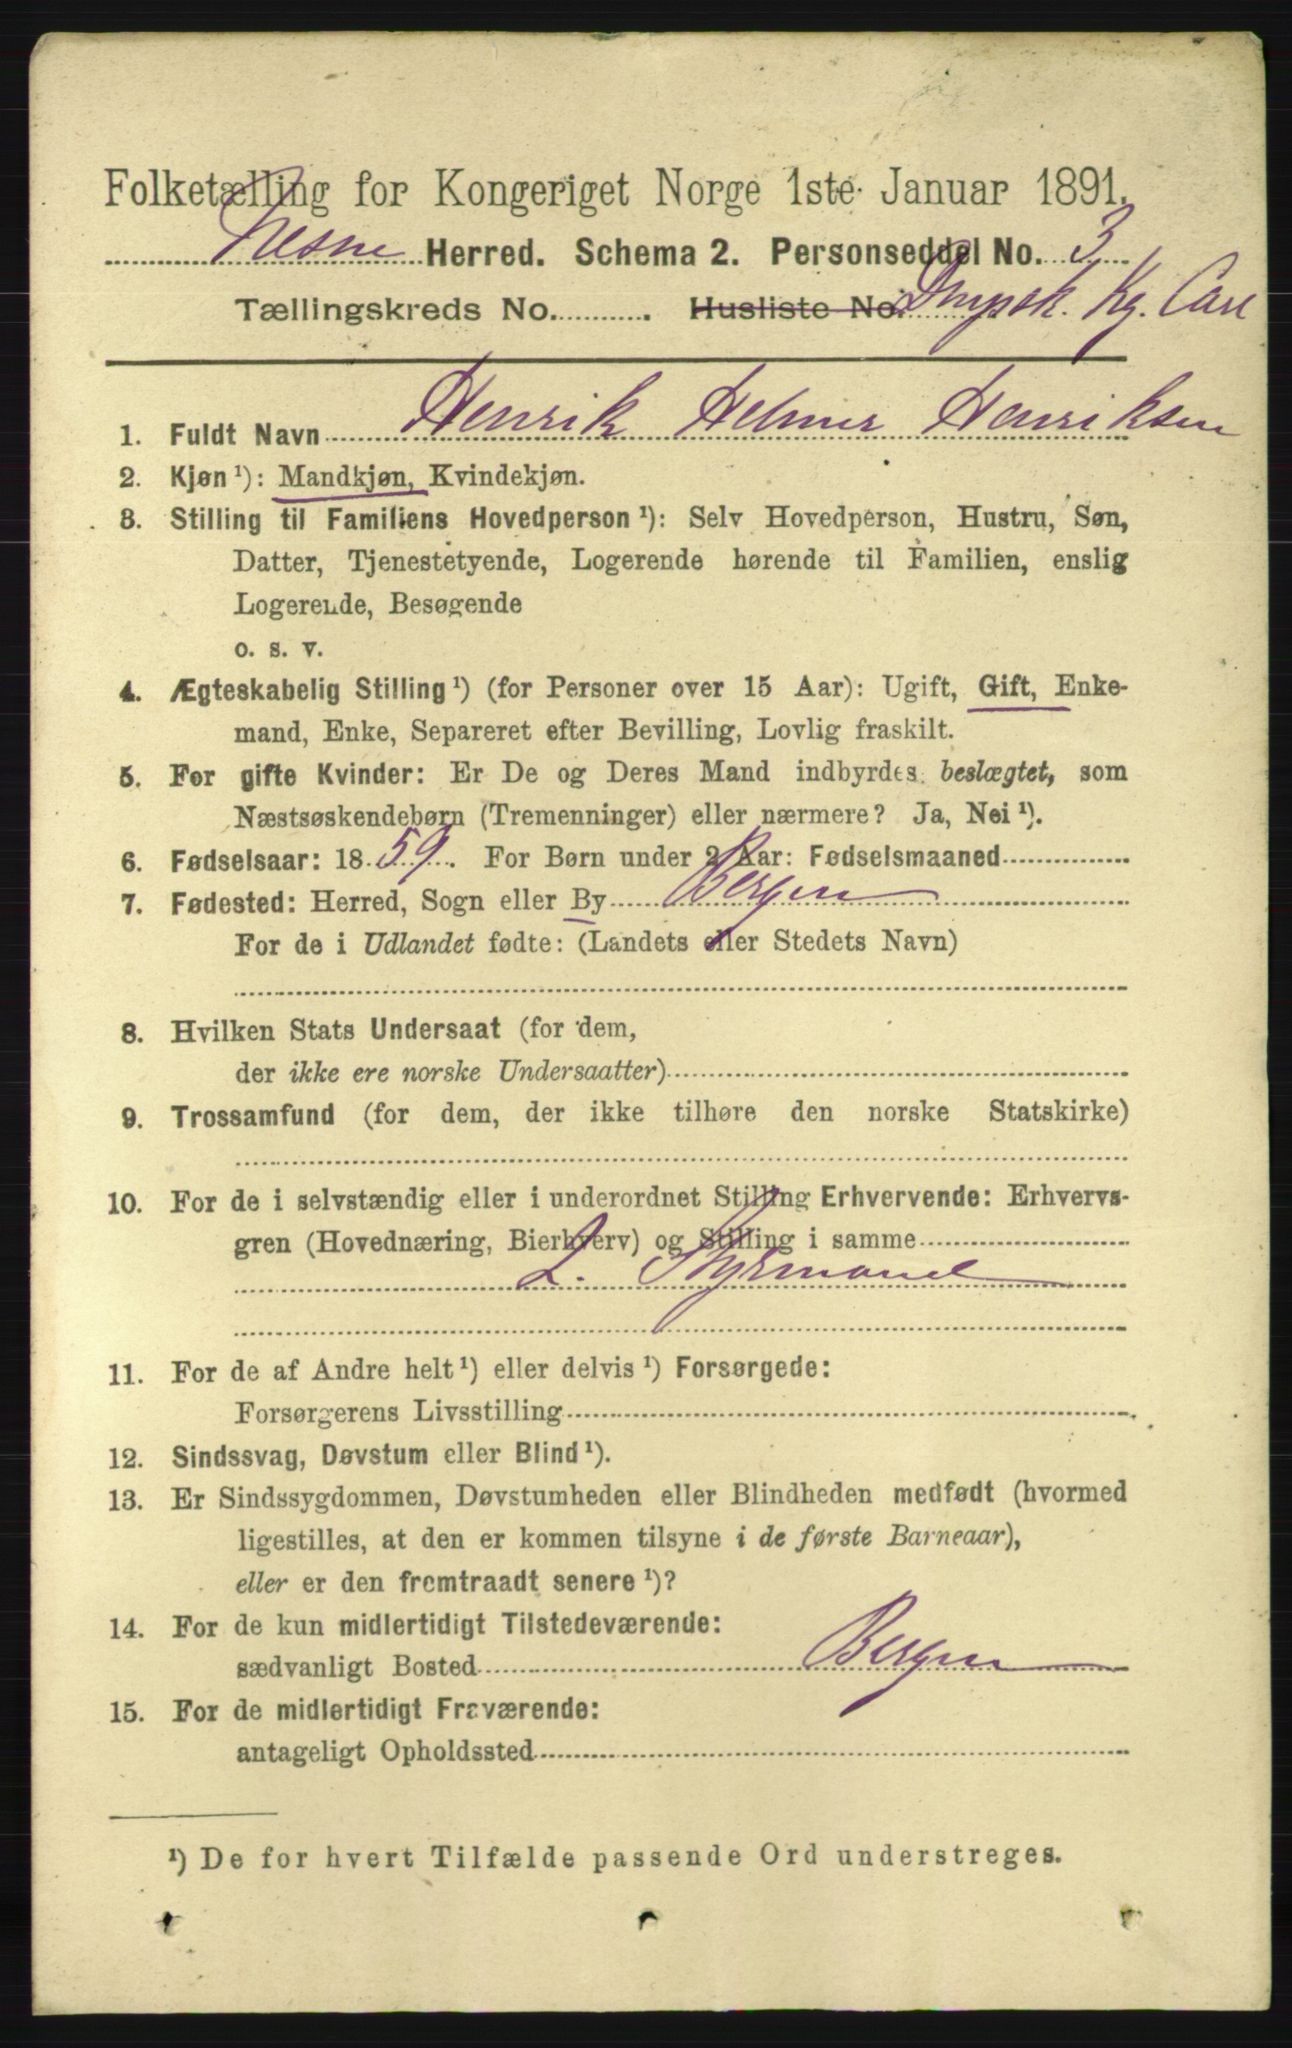 Folketælling for Kongeriget Norge 1ste Januar 1891.
Nesne Herred. Schema 2. Personseddel No. 3
Tællingskreds No. Husliste No. Dmpsk. Kg. Carl
1. Fuldt Navn Henrik Helmer Henriksen
2. Kjøn ¹): Mandkjøn, Kvindekjøn.
3. Stilling til Familiens Hovedperson ¹): Selv Hovedperson, Hustru, Søn,
Datter, Tjenestetyende, Logerende hørende til Familien, enslig
Logerende, Besøgende
o. s. v.
4. Ægteskabelig Stilling ¹) (for Personer over 15 Aar): Ugift, Gift, Enke-
mand, Enke, Separeret efter Bevilling, Lovlig fraskilt.
5. For gifte Kvinder: Er De og Deres Mand indbyrdes beslægtet, som
Næstsøskendebørn (Tremenninger) eller nærmere? Ja, Nei ¹).
6. Fødselsaar: 1859. For Børn under 2 Aar: Fødselsmaaned
7. Fødested: Herred, Sogn eller By Bergen
For de i Udlandet fødte: (Landets eller Stedets Navn)
8. Hvilken Stats Undersaat (for dem,
der ikke ere norske Undersaatter)
9. Trossamfund (for dem, der ikke tilhøre den norske Statskirke)
10. For de i selvstændig eller i underordnet Stilling Erhvervende: Erhvervs-
gren (Hovednæring, Bierhverv) og Stilling i samme
2. Styrmand
11. For de af Andre helt ¹) eller delvis ¹) Forsørgede:
Forsørgerens Livsstilling
12. Sindssvag, Døvstum eller Blind ¹).
13. Er Sindssygdommen, Døvstumheden eller Blindheden medfødt (hvormed
ligestilles, at den er kommen tilsyne i de første Barneaar),
eller er den fremtraadt senere ¹)?
14. For de kun midlertidigt Tilstedeværende:
sædvanligt Bosted Bergen
15. For de midlertidigt Fraværende:
antageligt Opholdssted
¹) De for hvert Tilfælde passende Ord understreges.